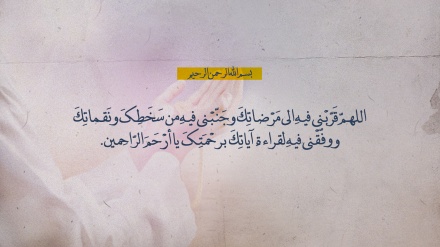 بسم الله الرحمن الرحیم
اللهمّ قَرّبْنی فیهِ الی مَرْضاتِکَ وجَنّبْنی فیهِ من سَخَطِکَ ونَقماتِکَ
ووفّقْنی فیهِ لقراءةِ آیاتِکَ برحْمَتِکَ یا أرْحَمَ الرّاحِمین.